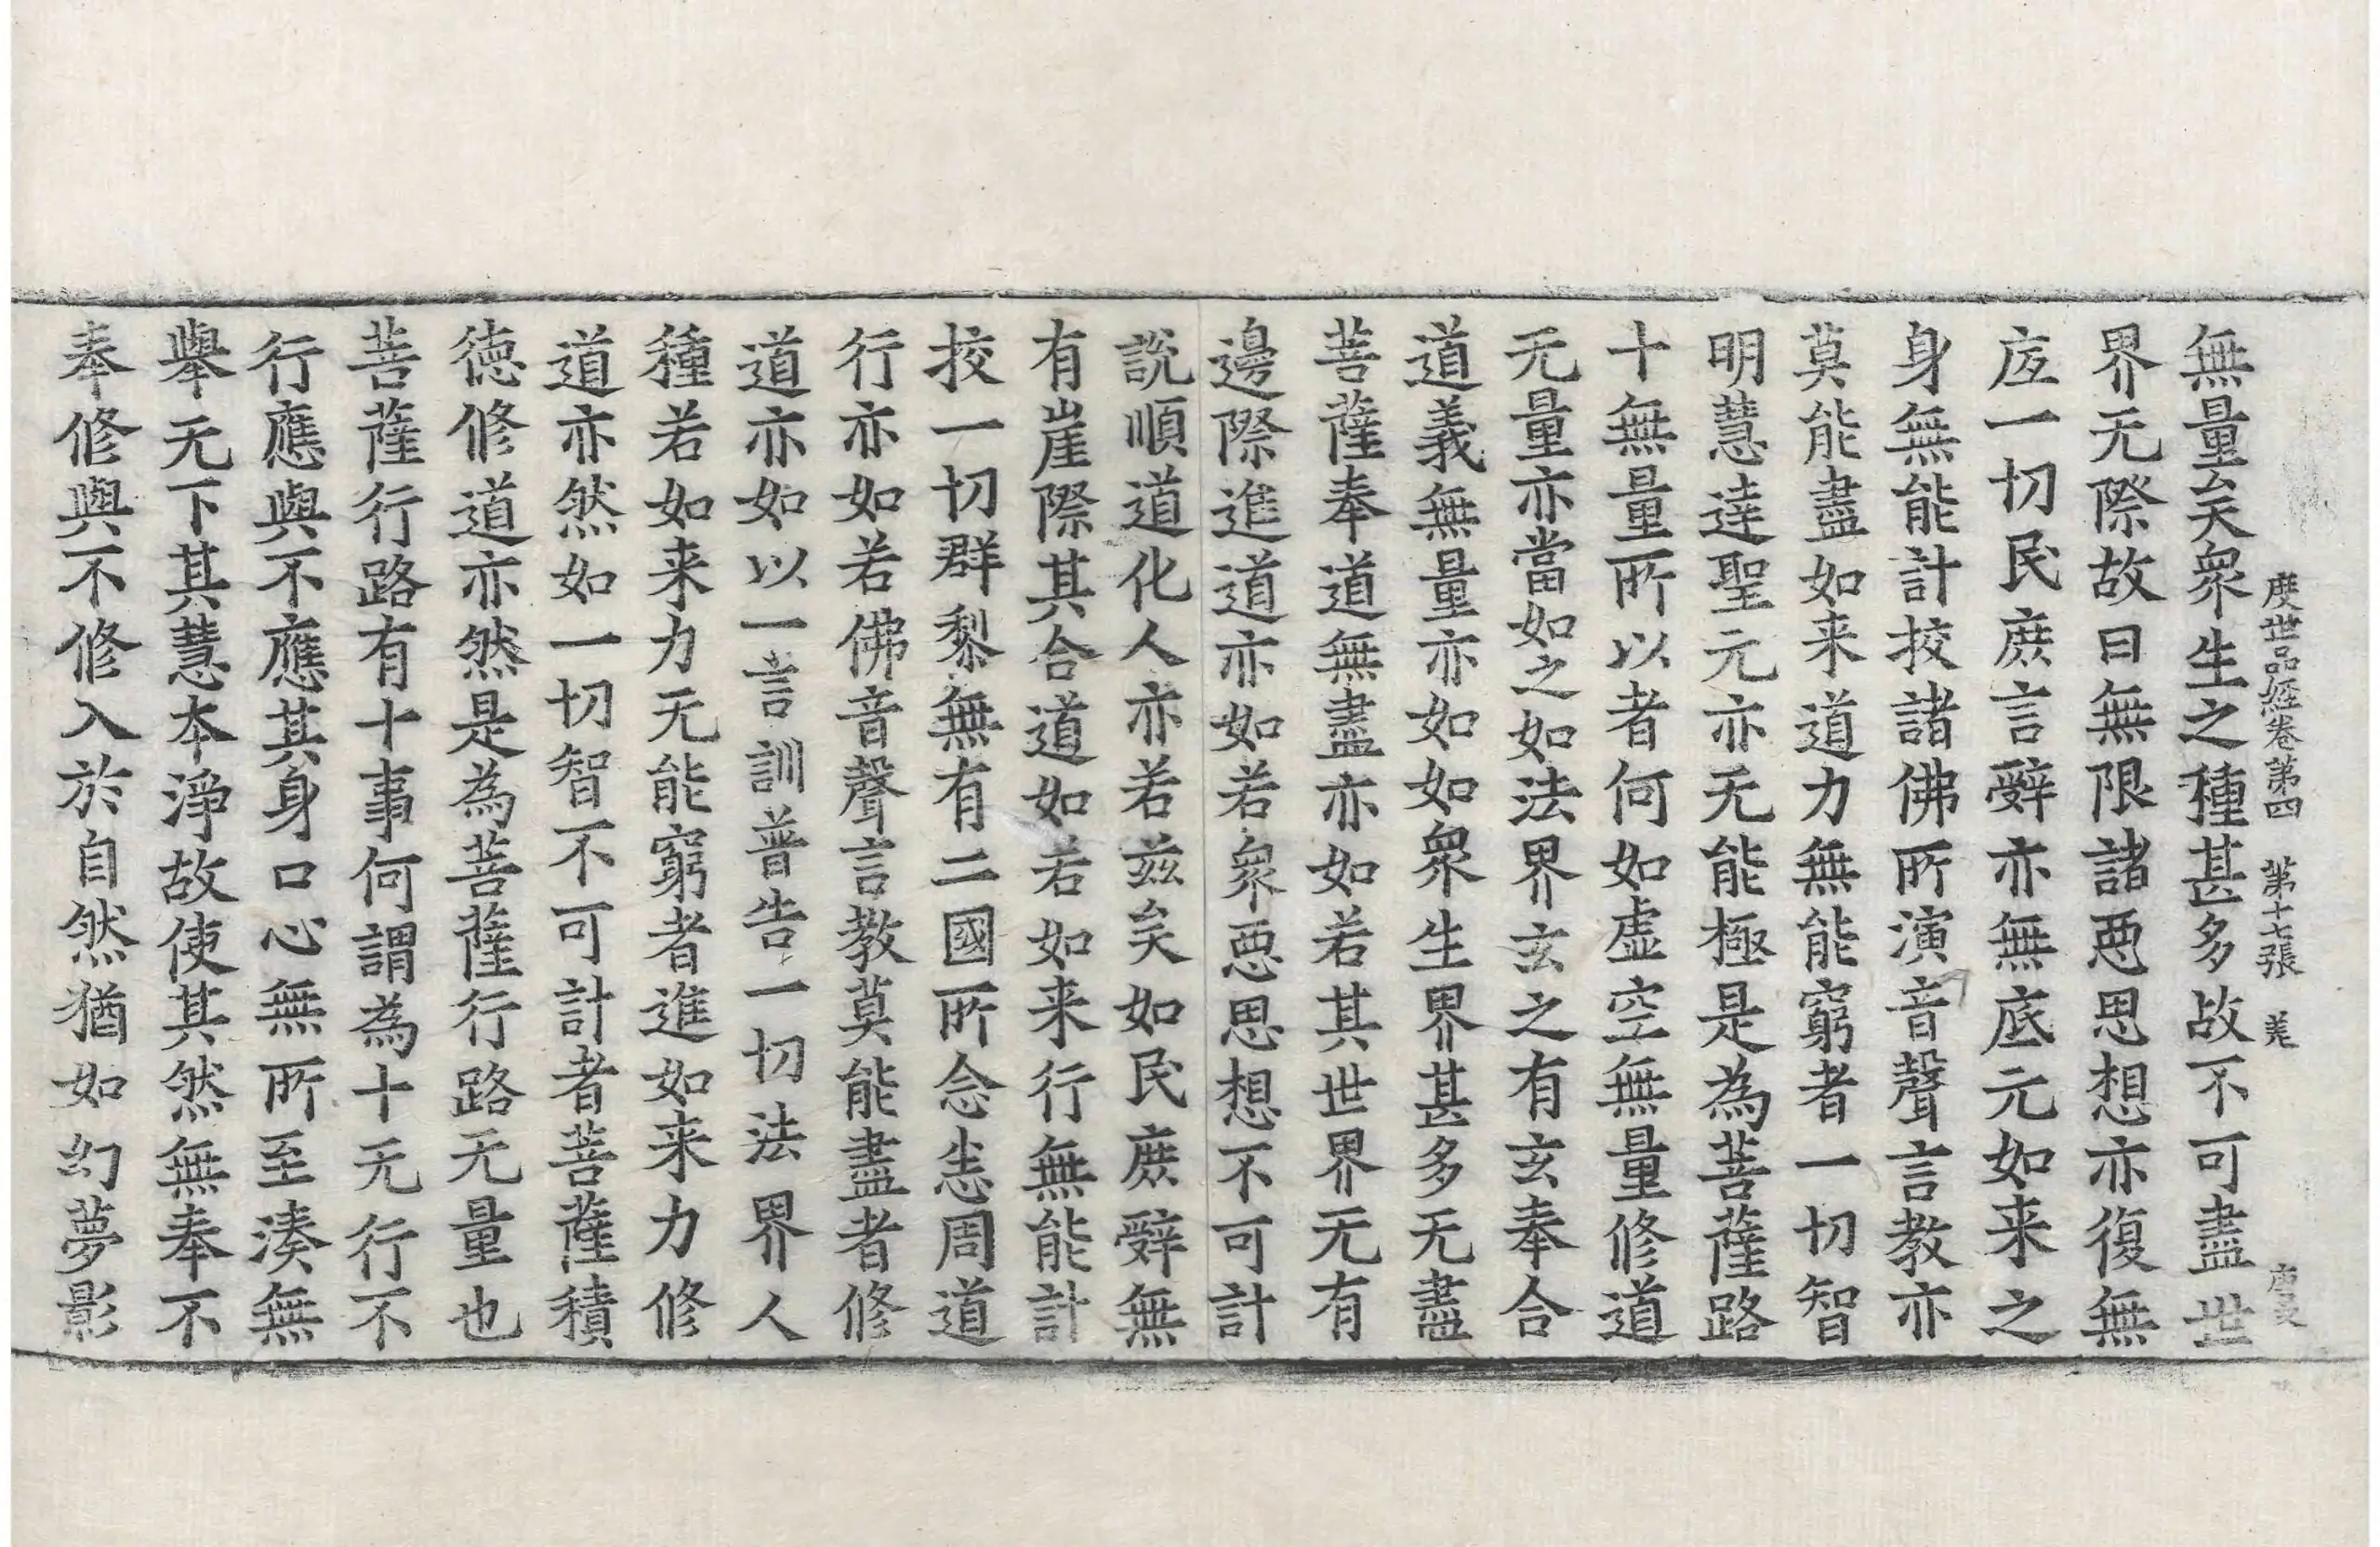 度世品經卷第四　第十七張　羌
無量矣衆生之種甚多故不可盡世
界无際故曰無限諸惡思想亦復無
底一切民庶言辝亦無底元如来之
身無能計挍諸佛所演音聲言教亦
莫能盡如来道力無能窮者一切智
明慧達聖元亦无能極是為菩薩路
十無量所以者何如虛空無量修道
无量亦當如之如法界玄之有玄奉合
道義無量亦如如衆生界甚多无盡
菩薩奉道無盡亦如若其世界无有
邊際進道亦如若衆惡思想不可計
說順道化人亦若兹矣如民庶辝無
有崖際其合道如若如来行無能計
挍一切群黎無有二國所念恙周道
行亦如若佛音聲言教莫能盡者修
道亦如以一言訓普告一切法界人
種若如来力无能窮者進如来力修
道亦然如一切智不可計者菩薩積
德修道亦然是為菩薩行路无量也
菩薩行路有十事何謂為十无行不
行應與不應其身口心無所至湊無
舉无下其慧本淨故使其然無奉不
奉修與不修入於自然猶如幻夢影